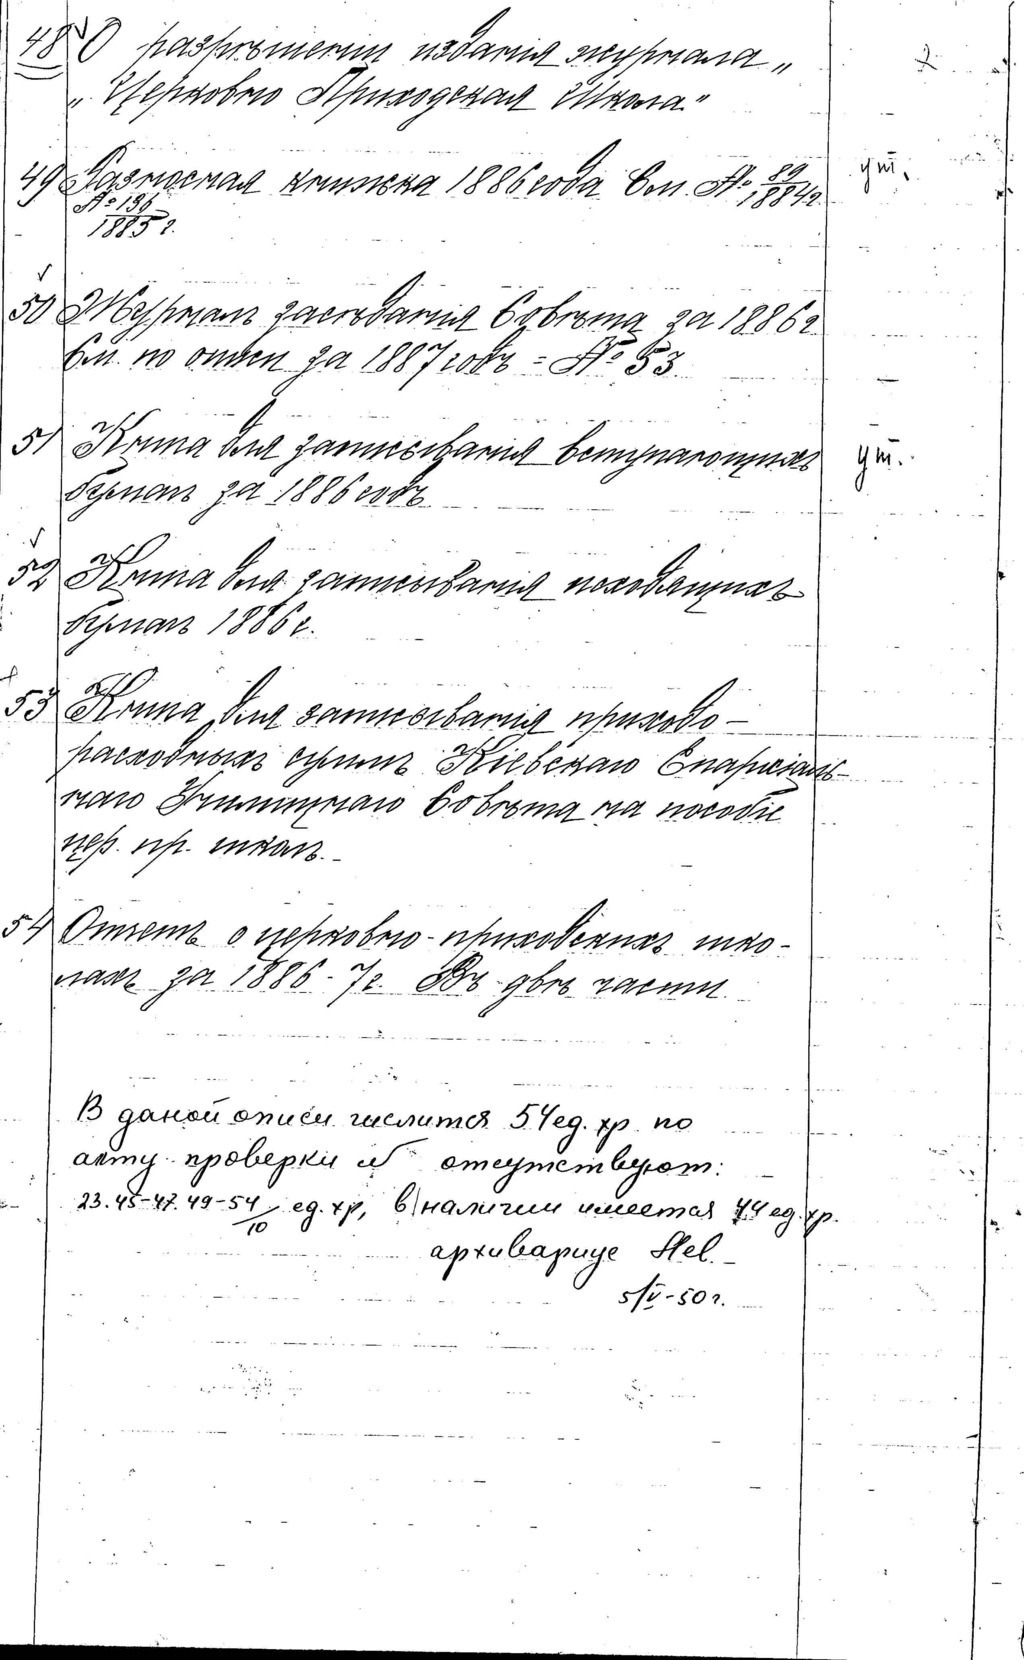 48 О разрѣшеніи изданія журнала „
„Церковно Приходская Школа."
49 Разносная книжка 1886 года См. № 89/1884 г. ут.
№ 136/1885 г.
50 Журналъ засѣданія Совѣта за 1886 г.
См. по описи за 1887 годъ = № 53.
51 Книга для записыванія вступающихъ ут.
бумагъ за 1886 годъ
52 Книга для записыванія исходящихъ
бумагъ 1886 г.
53 Книга для записыванія приходо-
расходныхъ суммъ Кіевскаго Епархіаль-
наго Училищнаго Совѣта на пособіе
цер. пр. школ.
54 Отчетъ о церковно-приходскихъ шко-
лахъ за 1886-7 г. Въ двѣ части.
В даной описи числится 54 ед. хр. по
акту проверки № отсутствуют:
23. 45-47. 49-54/10 ед. хр, в наличии имеется 44 ед. хр.
архивариус
5/V-50 г.